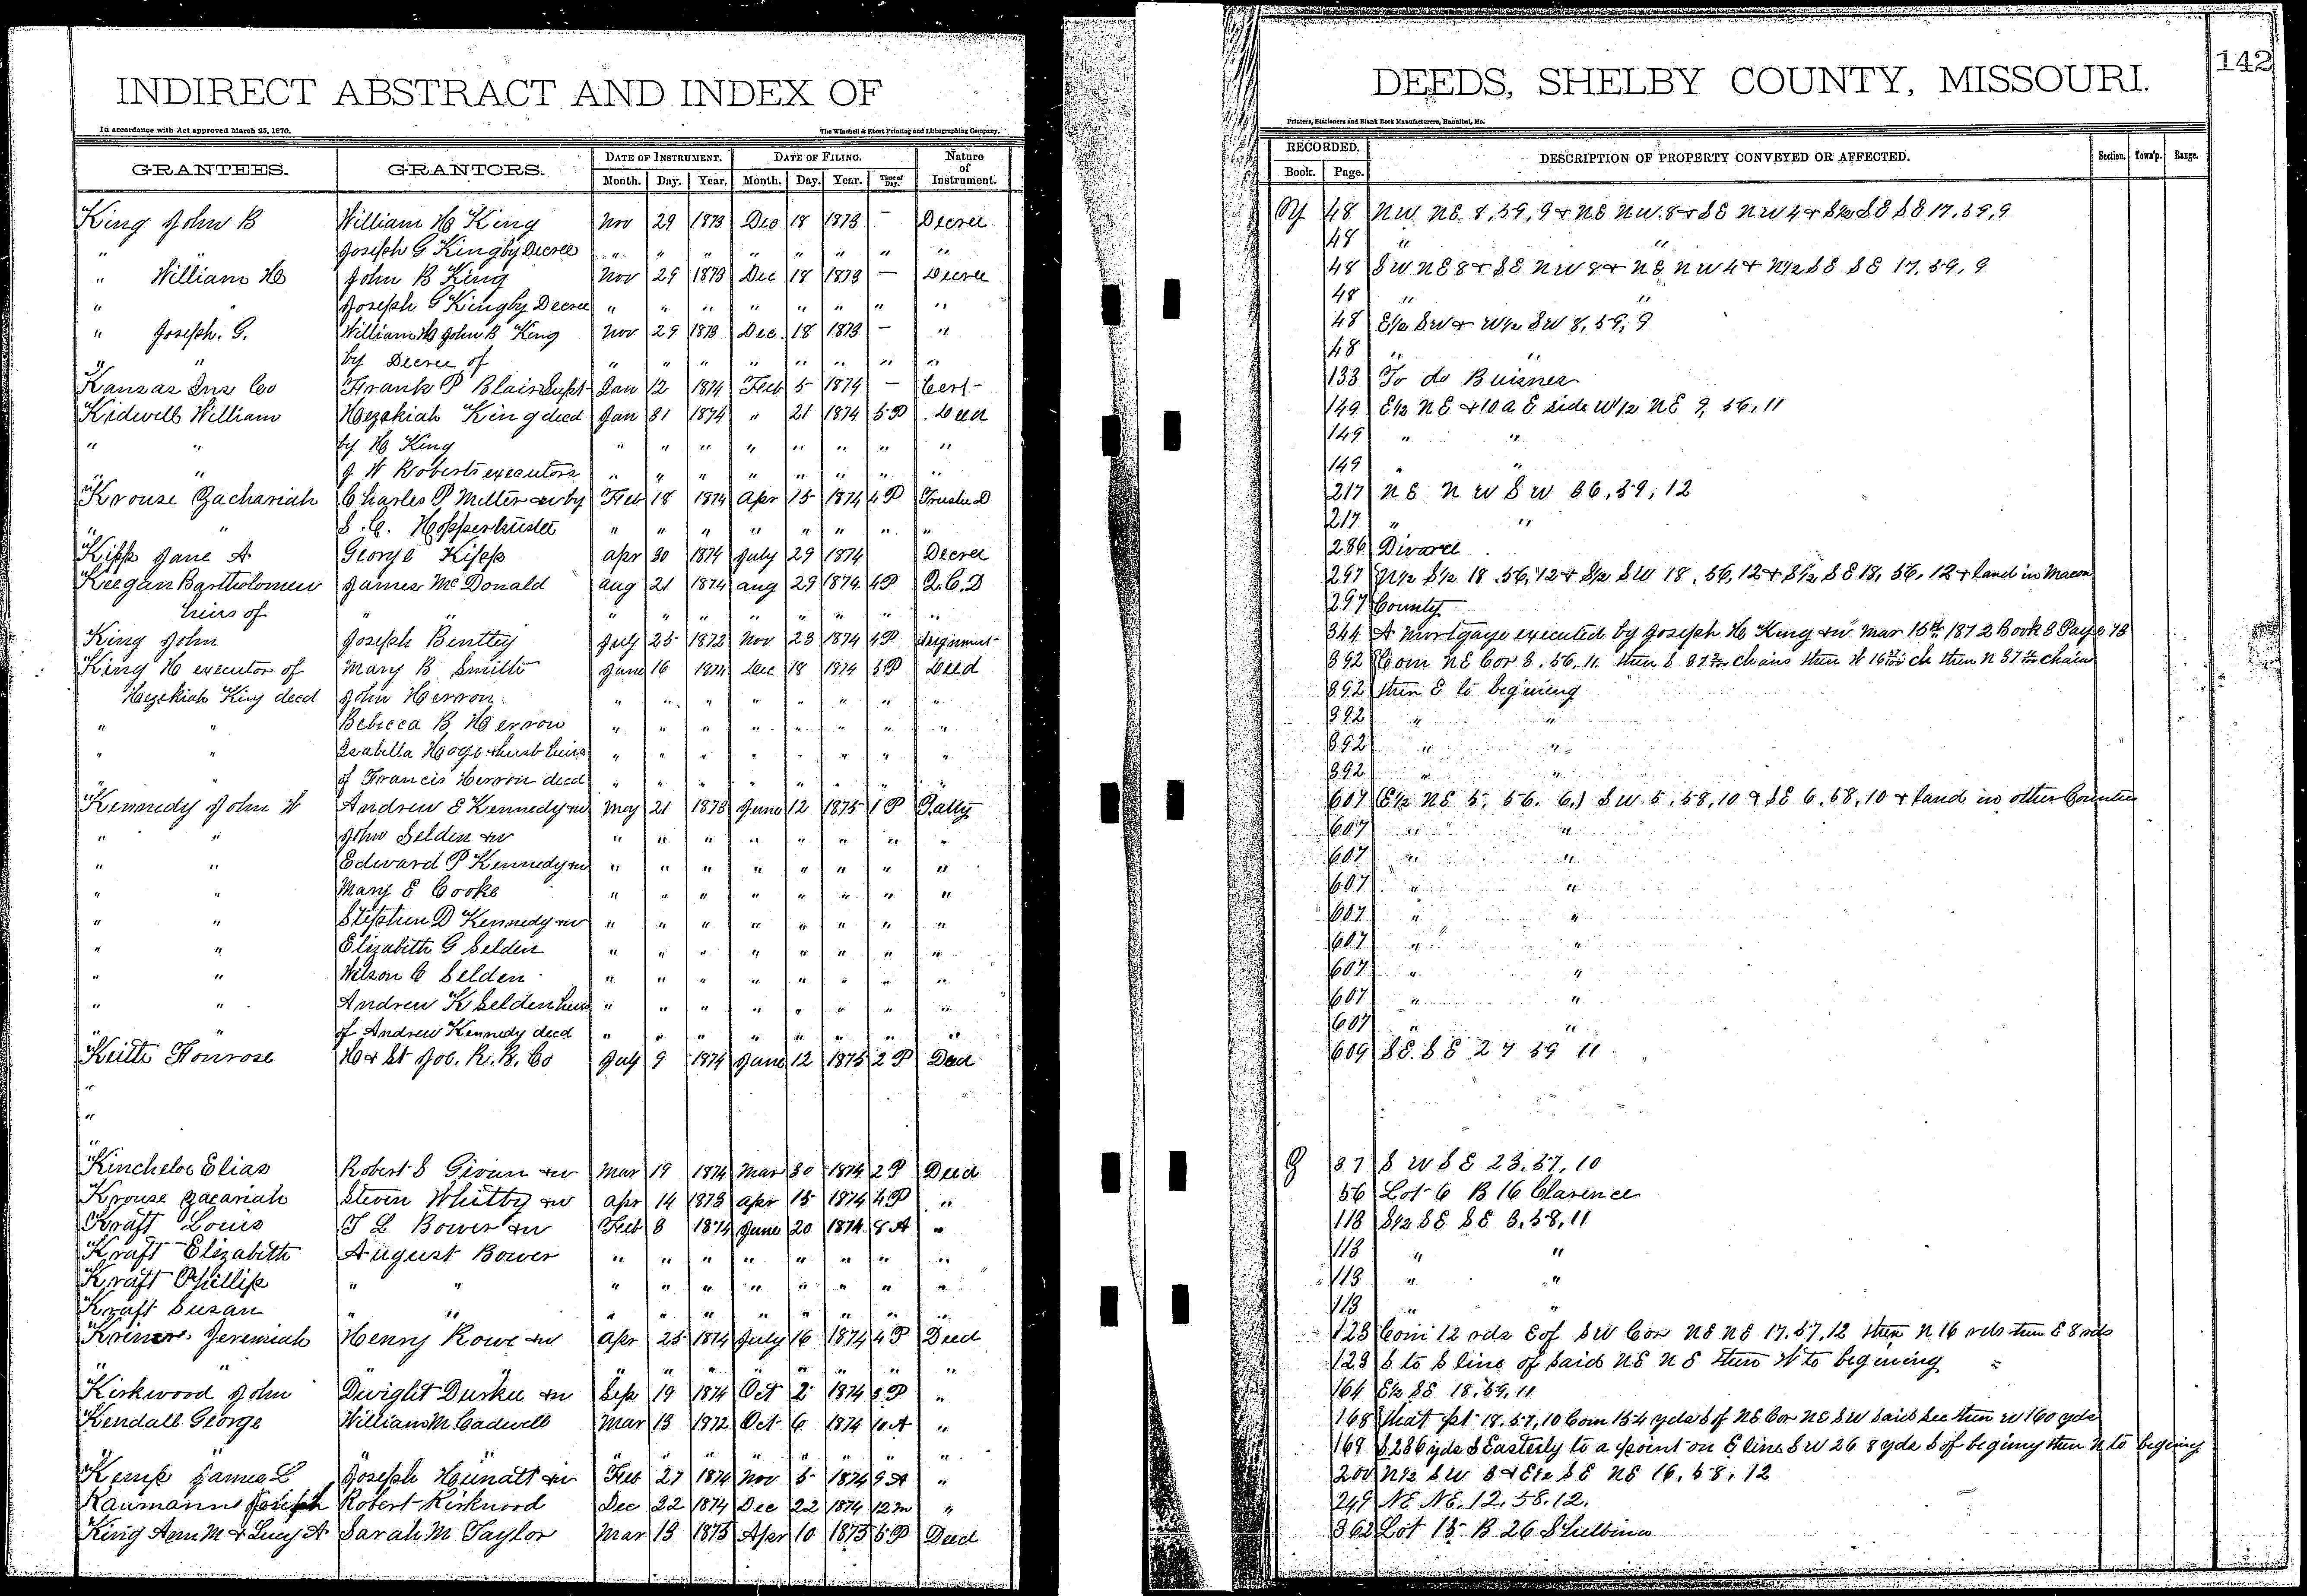 INDIRECT ABSTRACT AND INDEX OF DEEDS, SHELBY COUNTY, MISSOURI.
142
In accordance with Act approved March 25, 1870. The Winchell & Ebert Printing and Lithographing Company, Printers, Stationers and Blank Book Manufacturers, Hannibal, Mo.
GRANTEES. GRANTORS. DATE OF INSTRUMENT. DATE OF FILING. Nature of Instrument. RECORDED. DESCRIPTION OF PROPERTY CONVEYED OR AFFECTED. Section. Town'p. Range.
Month. Day. Year. Month. Day. Year. Time of Day. Book. Page.
King John B William H King Nov 29 1873 Dec 18 1873 — Decree 48 NW NE 8, 59, 9 & NE NW 8 & SE NW 4 & S½ SE SE 17, 59, 9
" " Joseph G King by Decree " " " " " " " 48 " "
" William H John B King Nov 29 1873 Dec 18 1873 — Decree 48 SW NE 8 & SE NW 8 & NE NW 4 & N½ SE SE 17, 59, 9
" " Joseph G King by Decree " " " " " " " " 48 " "
" Joseph. G. William H John B King Nov 29 1873 Dec. 18 1873 — " 48 E½ SW & W½ SW 8, 59, 9
" " by Decree of " " " " " " " " 48 " "
Kansas Ins Co Frank P Blair Supt Jan 12 1874 Feb 5 1874 — Cert 133 To do Buisnes
Kidwell William Hezekiah King decd Jan 31 1874 " 21 1874 5 P Deed 149 E½ NE & 10 a E side W½ NE 9, 56, 11
" " by H King " " " " " " " " 149 " "
" " J W Roberts executors " " " " " " " " 149 " "
Krouse Zachariah Charles P Miller & w by Feb 18 1874 Apr 15 1874 4 P Trustee D 217 NE NW SW 36, 59, 12
" " S. C. Hopper trustee " " " " " " " " 217 " "
Kipp Jane A George Kipp Apr 30 1874 July 29 1874 Decree 286 Divorce
Keegan Bartholomew James McDonald Aug 21 1874 Aug 29 1874 4 P Q.C.D 297 N½ S½ 18, 56, 12 & S½ SW 18, 56, 12 & S½ SE 18, 56, 12 & land in Macon
heirs of " " " " " " " " " 297 County
King John Joseph Bentley July 25 1872 Nov 23 1874 4 P Assignment 344 A mortgage executed by Joseph H King & w Mar 15th 1872 Book S Page 78
King H executor of Mary B Smith June 16 1874 Dec 18 1874 3 P Deed 392 Com NE Cor 3, 56, 11 then S 37 chains then W 16 ch then N 37 chains
Hezekiah King decd John Herron " " " " " " " " 392 then E to begining
" " Rebecca B Herron " " " " " " " " 392 " "
" " Isabella Hoge & husb heirs " " " " " " " " 392 " "
" of Francis Herron decd " " " " " " " " 392 " "
Kennedy John W Andrew E Kennedy & w May 21 1873 June 12 1875 1 P 607 (E½ NE 5, 56, 6,) SW 5, 58, 10 & SE 6, 58, 10 & land in other Counties
" " John Selden & w " " " " " " " " 607 " "
" " Edward P Kennedy & w " " " " " " " " 607 " "
" " Mary E Cooke " " " " " " " " 607 " "
" " Stephen D Kennedy & w " " " " " " " " 607 " "
" " Elizabeth G Selden " " " " " " " " 607 " "
" " Wilson C Selden " " " " " " " " 607 " "
" " Andrew K Selden heirs " " " " " " " " 607 " "
" " of Andrew Kennedy decd " " " " " " " " 607 " "
Keith Fonrose H & St Joe. R. R. Co July 9 1874 June 12 1875 2 P Deed 609 SE SE 27 59 11
"
"
"
Kincheloe Elias Robert S Givan & w Mar 19 1874 Mar 30 1874 2 P Deed 37 SW SE 23, 57, 10
Krouse Zacariah Steven Whitby & w Apr 14 1873 Apr 15 1874 4 P " 56 Lot 6 B 16 Clarence
Kraft Louis T L Bower & w Feb 3 1874 June 20 1874 8 A " 113 S½ SE SE 3, 58, 11
Kraft Elizabeth August Bower " " " " " " " " 113 " "
Kraft Phillip " " " " " " " " " " 113 " "
Kraft Susan " " " " " " " " " " 113 " "
Jeremiah Henry Rowe & w Apr 25 1874 July 16 1874 4 P Deed 123 Com 12 rds E of SW Cor NE NE 17, 57, 12 then N 16 rds then E 8 rds
" " " " " " " " " " 123 S to S line of said NE NE then W to begining
Kirkwood John Dwight Durkee & w Sep 19 1874 Oct 2 1874 3 P " 164 E½ SE 18, 59, 11
Kendall George William M. Cadwell Mar 13 1872 Oct 6 1874 10 A " 168 that pt 18, 57, 10 Com 154 yds S of NE Cor NE SW said Sec then W 160 yds
" " " " " " " " 168 S 286 yds S Easterly to a point on E line SW 268 yds S of begining then N to begining
Kemp James L Joseph Hunatt & w Feb 27 1874 Nov 5 1874 9 A " 200 N½ SW 3 & E½ SE NE 16, 58, 12
Kaumanns Joseph Robert Kirkwood Dec 22 1874 Dec 22 1874 12 m " 249 NE NE. 12. 58. 12.
King Ann M & Lucy A Sarah M Taylor Mar 13 1875 Apr 10 1875 5 P Deed 362 Lot 15 B 26 Shelbina